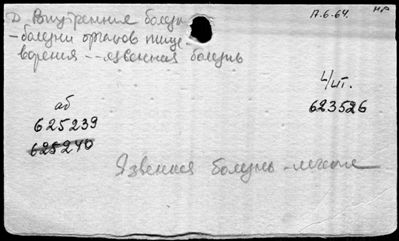 Внутренние болезн
17.6.64.
- болезни органов пище
ворения -- язвенная болезнь
ч/ит.
аб
623526
625239
625240
Язвенная болезнь - лечение